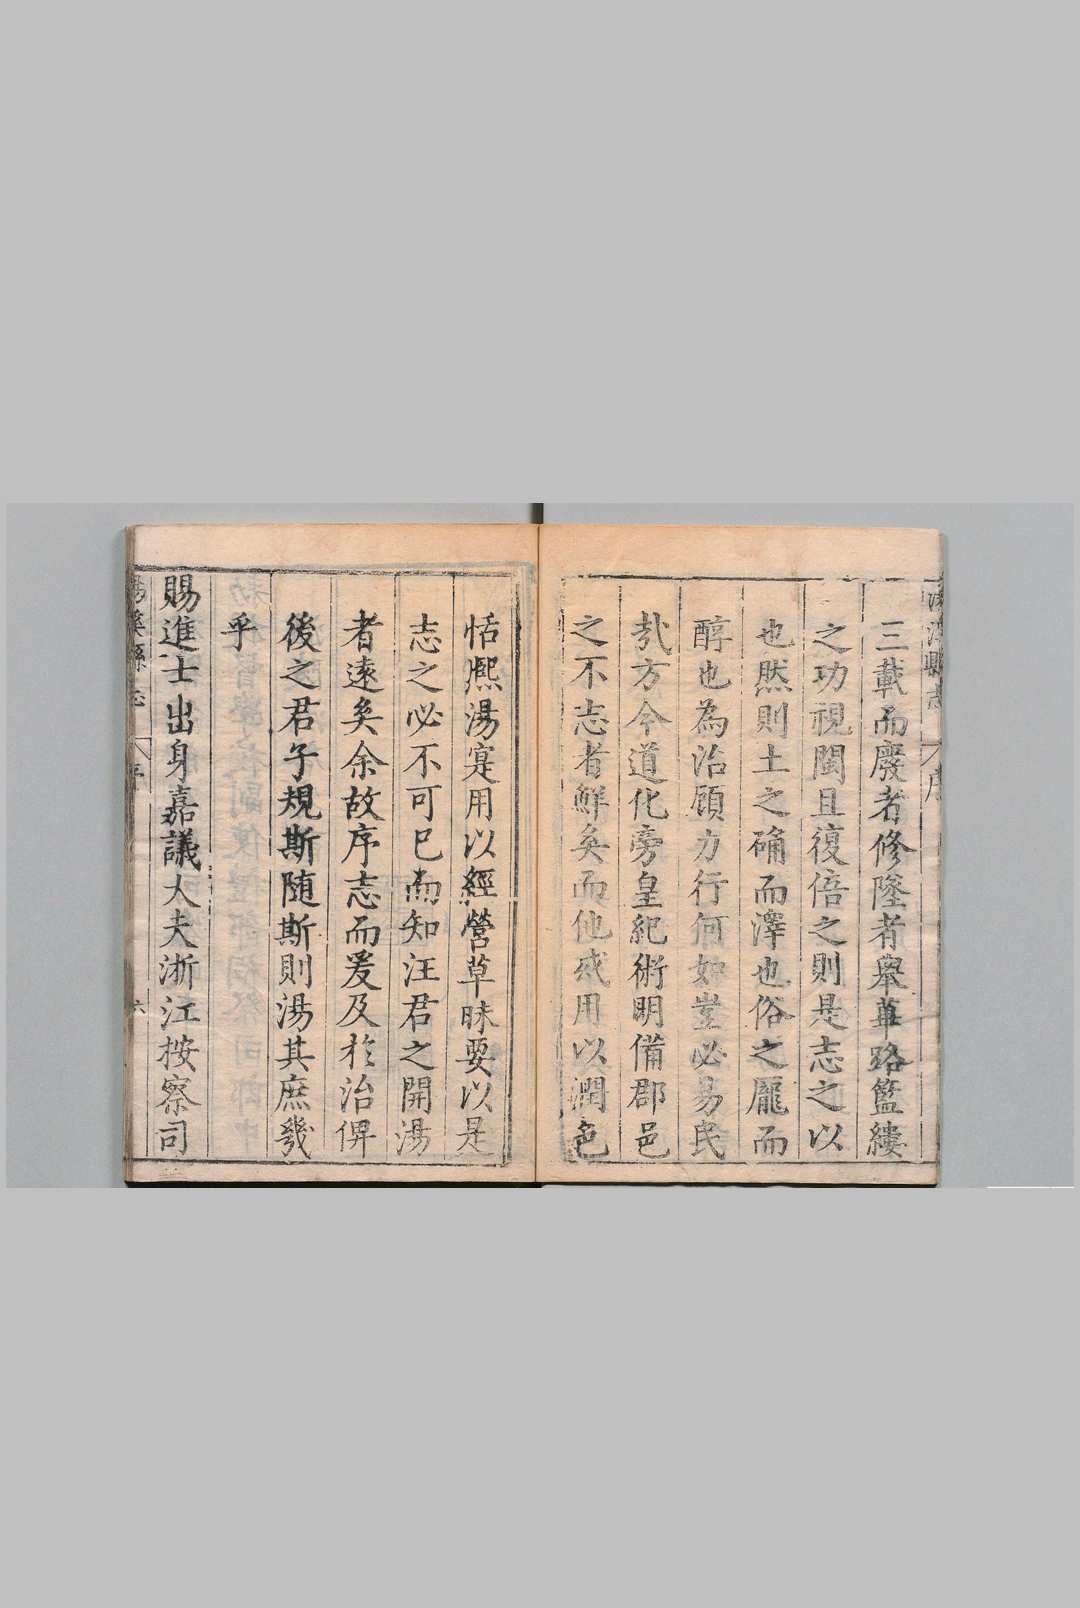 三載而廢者修墜者舉蓽路籃縷
之功視閩且復倍之則是志之以
也然則土之确而澤也俗之龐而
醇也為治顧力行何如豈必易民
㢤方今道化旁皇紀術明備郡邑
之不志者鮮矣而他或用以潤色
恬熈湯寔用以經營草昧要以是
志之必不可已而知汪君之開湯
者遠矣余故序志而爰及於治俾
後之君子規斯隨斯則湯其庶幾
乎
賜進士出身嘉議大夫浙江按察司
湯溪縣志 序 六